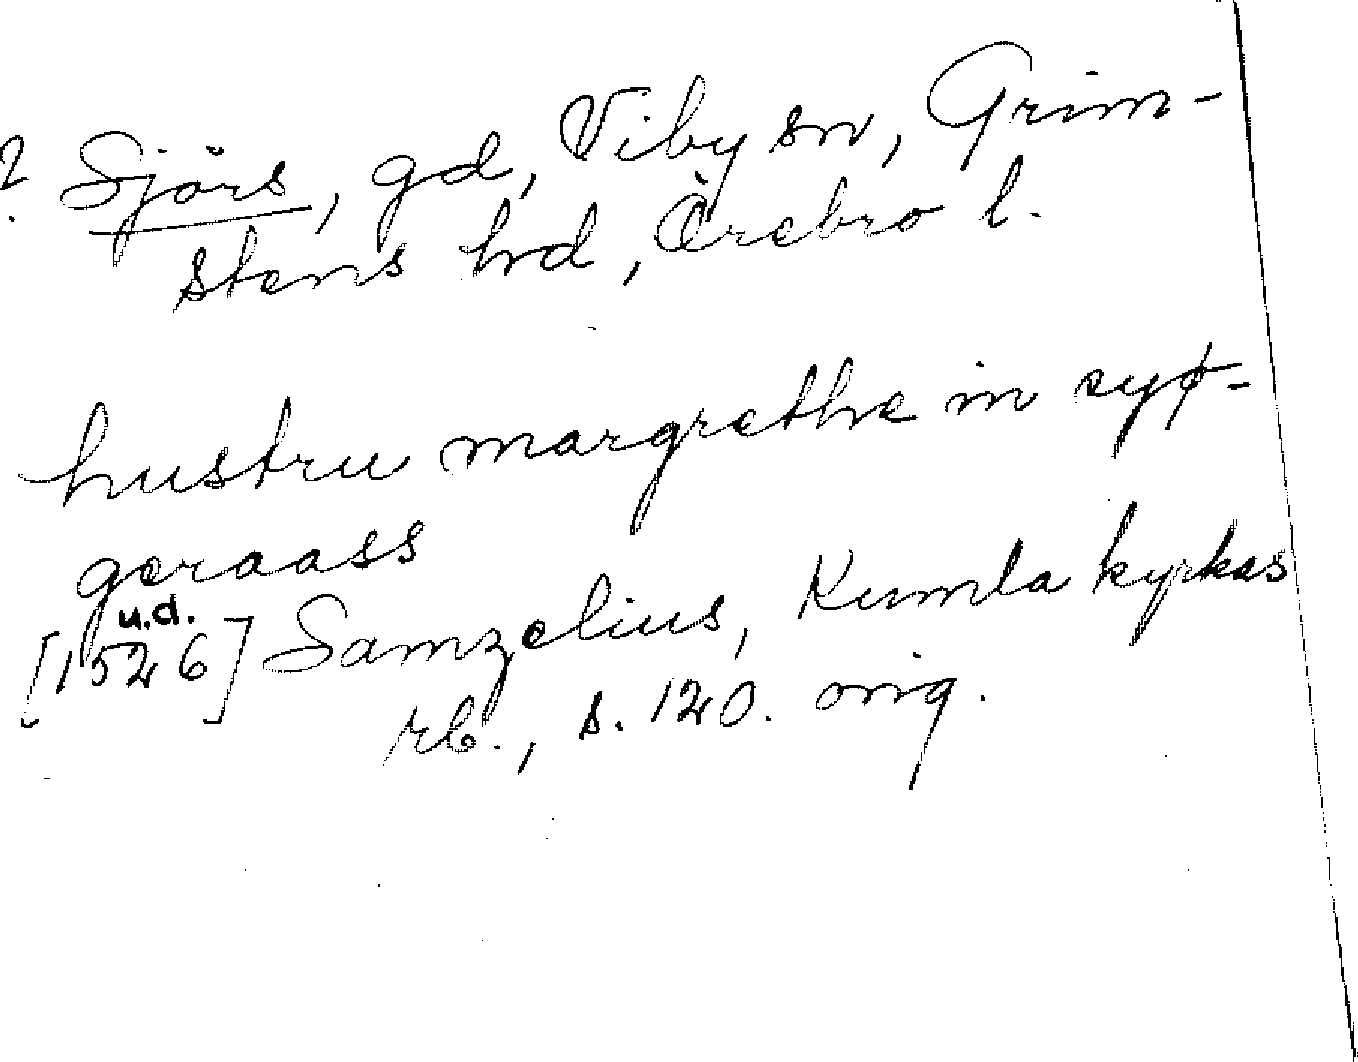 ? Sjörs, gd, Viby sn, Grim-
stens hd, Örebro l.
hustru margrethe in syø-
geraass
u.d.
[1526] Samzelius, Kumla kyrkas
rb., s. 120. orig.